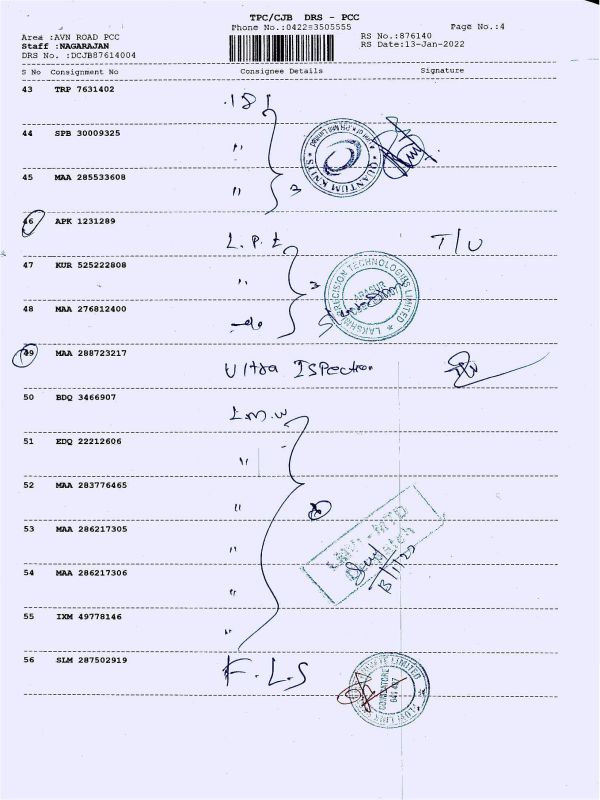 TPC/CJB DRS - PCC
Phone No.:042223505555 Page No.:4
Area :AVN ROAD PCC RS No.:876140
Staff :NAGARAJAN RS Date:13-Jan-2022
DRS No. :DCJB87614004
S No Consignment No Consignee Details Signature
43 TRP 7631402
44 SPB 30009325 "
45 MAA 285533608 " 3
46 APK 1231289 L.P.T T/U
47 KUR 525222808 " 3
48 MAA 276812400 do
49 MAA 288723217 Ultra ISPection
50 BDQ 3466907
51 EDQ 22212606 "
52 MAA 283776465 "
53 MAA 286217305 "
54 MAA 286217306 "
55 IXM 49778146 "
56 SLM 287502919 F.L.S
QUANTUM KNITS
LAKSHMI PRECISION TECHNOLOGIES LIMITED
ARASUR
COIMBATORE